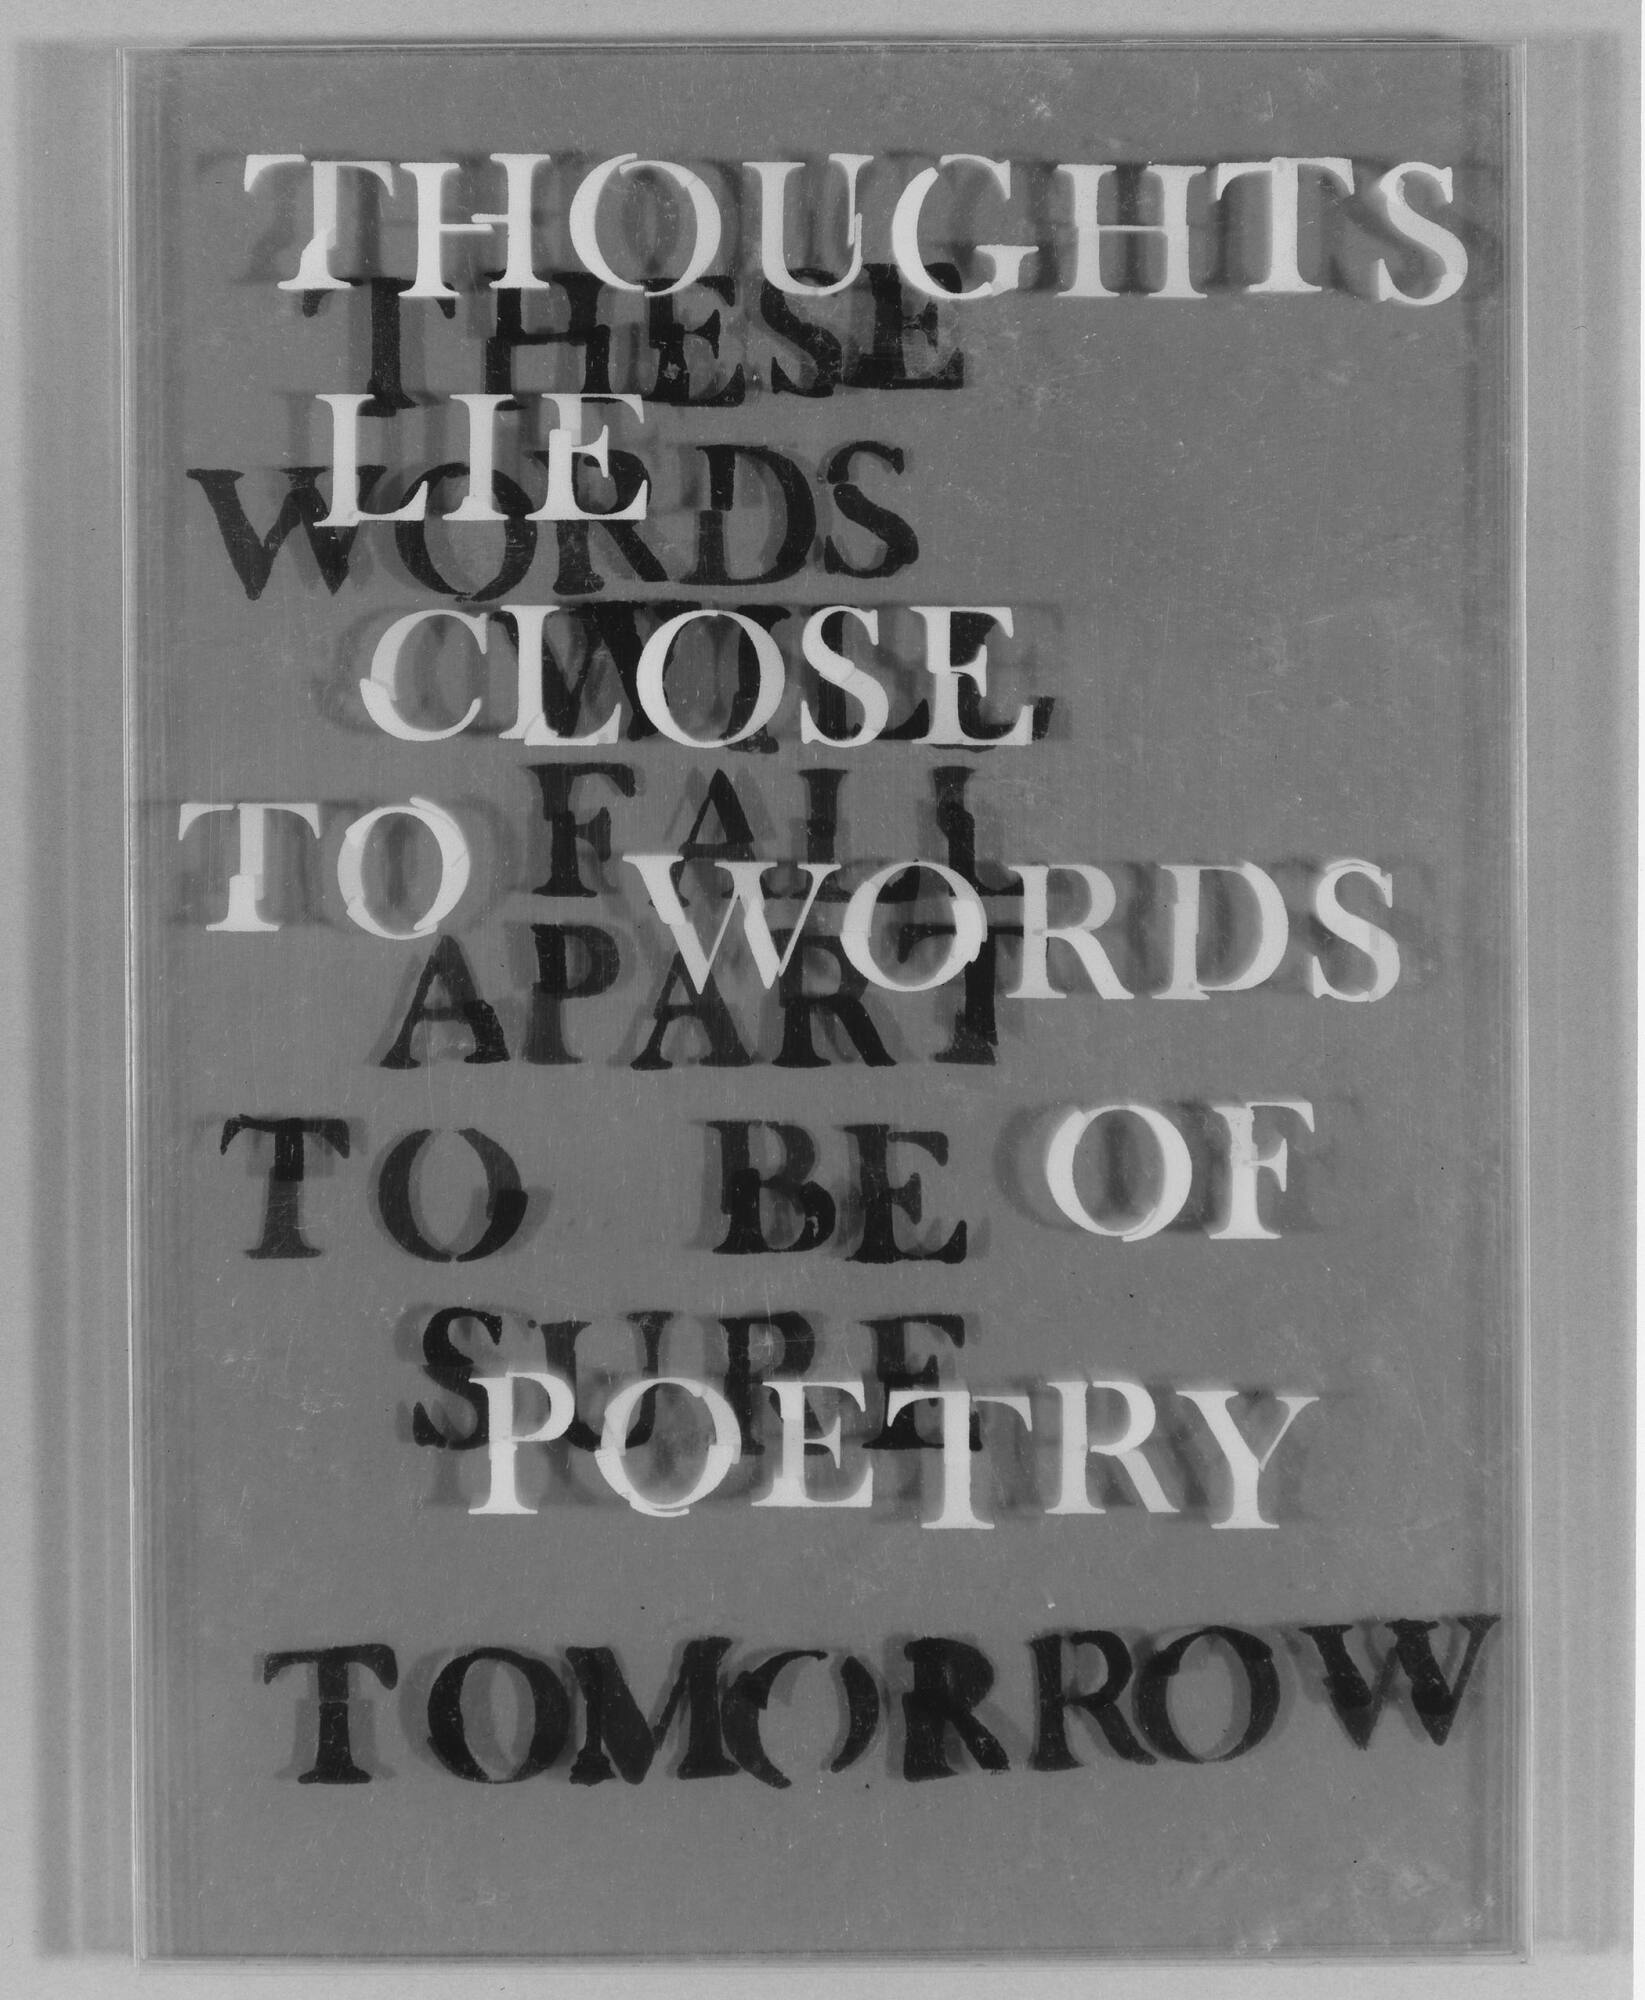 THOUGHTS
THESE
LIE
WORDS
CLOSE
WILL
FALL
TO WORDS
APART
TO BE OF
SURE
POETRY
TOMORROW